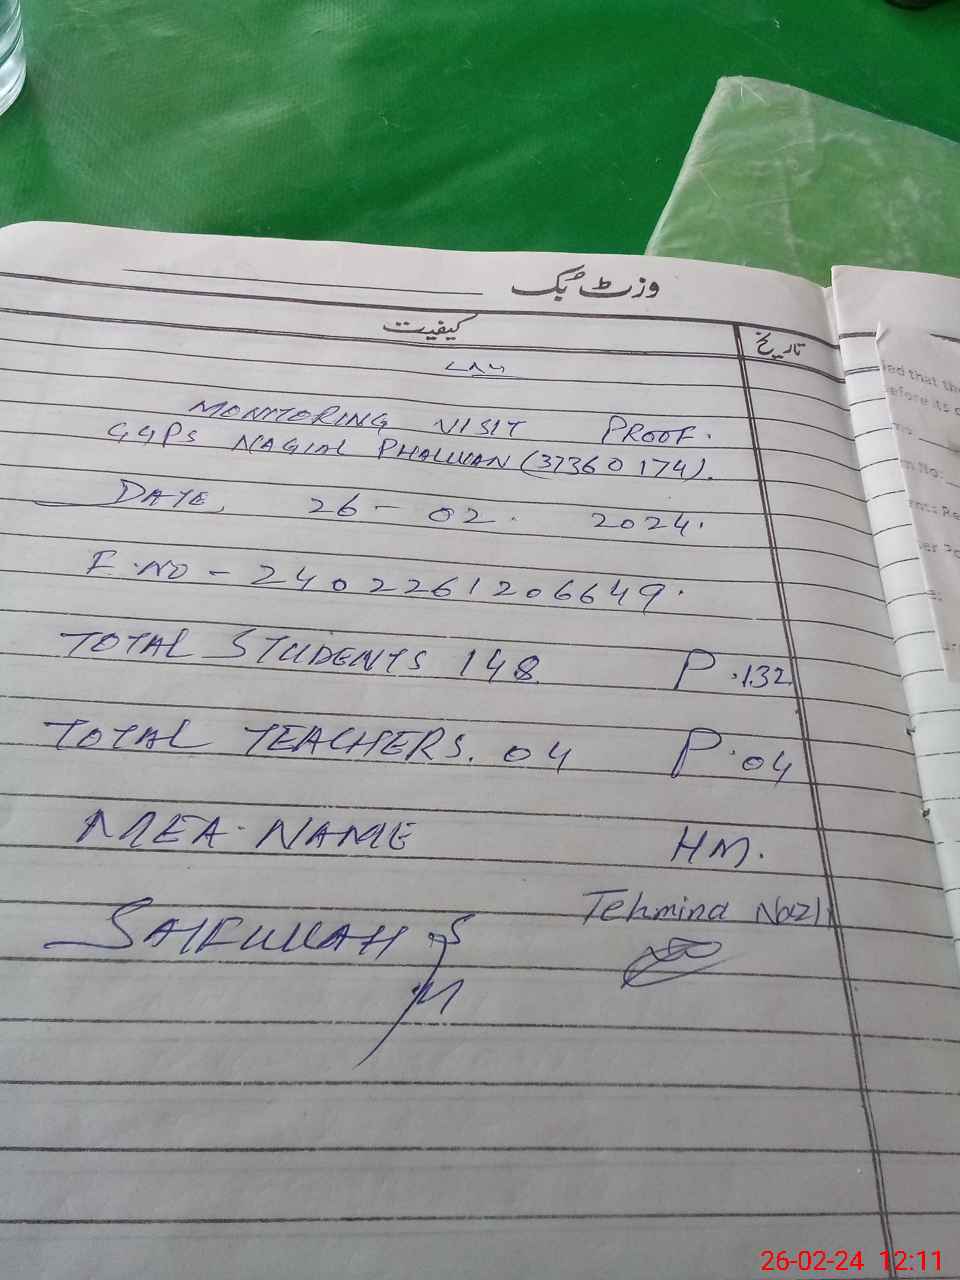 وزٹ بُک
کیفیت
تاریخ
MONITORING VISIT PROOF.
GGPS NAGIAL PHALWAN (37360174).
DATE, 26 - 02. 2024.
F. NO - 2402261206649.
TOTAL STUDENTS 148 P.132
TOTAL TEACHERS. 04 P.04
MEA. NAME HM.
SAIFULLAH Tehmina Nazli
26-02-24 12:11